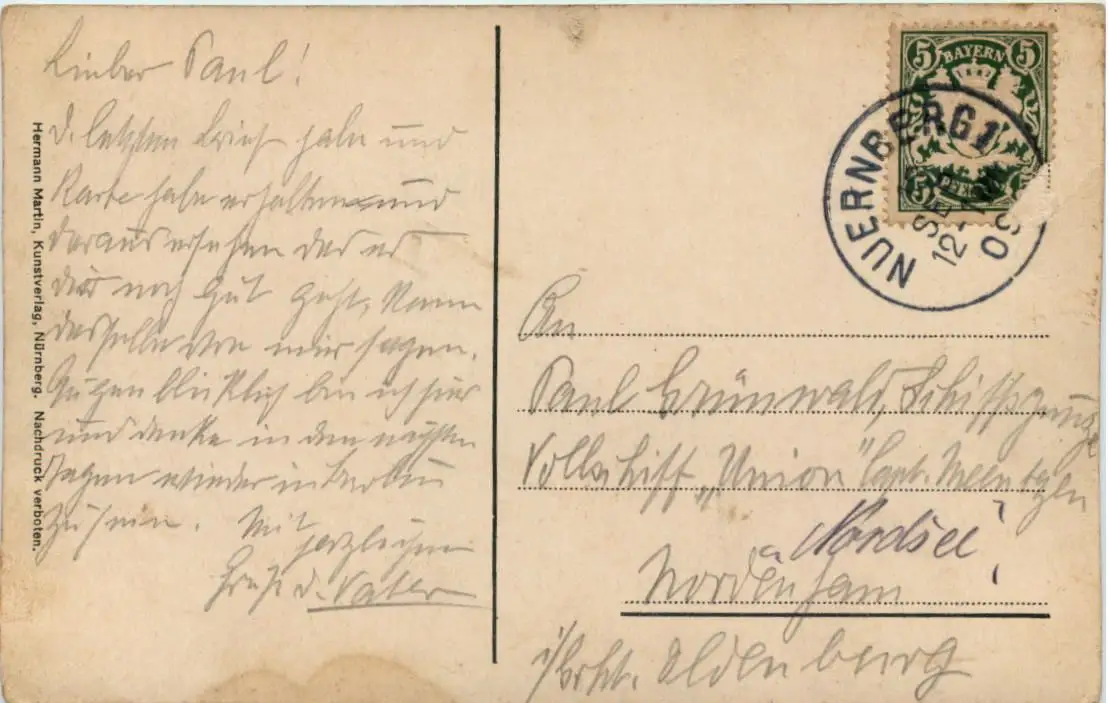 Lieber Paul!
d. letzten Brief habe und
Karte habe erhalten und
daraus ersehen das es
dir noch gut geht, kann
dasselbe von mir sagen.
Augenblicklich bin ich hier
und denke in den nächsten
Tagen wieder in
zu sein. Mit
herzlichen
Gruß d. Vater
Hermann Martin, Kunstverlag, Nürnberg. Nachdruck verboten.
5 BAYERN 5
NUERNBERG 1
SEP
12-
An
Paul Grünwald, Schiffsjunge
Vollschiff „Union“ Capt. Meentzen
Nordsee
Nordenham
i/ Oldenburg